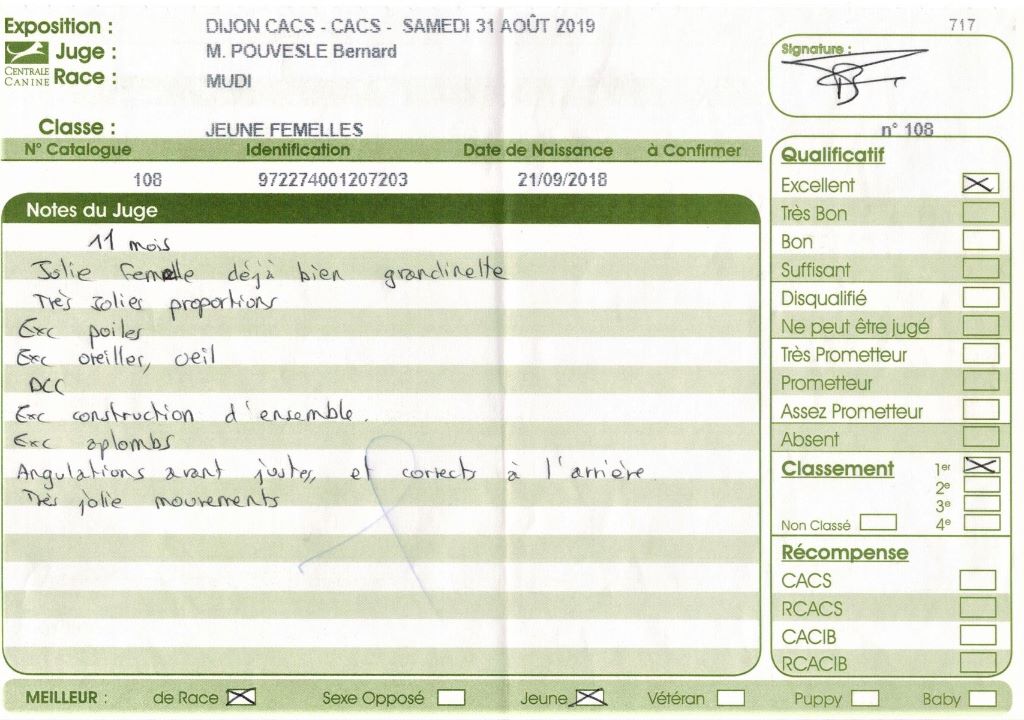 Exposition : DIJON CACS - CACS - SAMEDI 31 AOÛT 2019
717
CENTRALE CANINE
Juge : M. POUVESLE Bernard
Race : MUDI
Signature :
Classe : JEUNE FEMELLES
n° 108
N° Catalogue Identification Date de Naissance à Confirmer
108 972274001207203 21/09/2018
Notes du Juge
11 mois
Jolie femelle déjà bien grandinette
Très jolies proportions
Exc poiles
Exc oreilles, oeil
DCC
Exc construction d'ensemble.
Exc aplombs
Angulations avant justes, et corrects à l'arrière.
Très jolie mouvements
Qualificatif
Excellent
Très Bon
Bon
Suffisant
Disqualifié
Ne peut être jugé
Très Prometteur
Prometteur
Assez Prometteur
Absent
Classement 1er
2e
3e
Non Classé 4e
Récompense
CACS
RCACS
CACIB
RCACIB
MEILLEUR : de Race Sexe Opposé Jeune Vétéran Puppy Baby